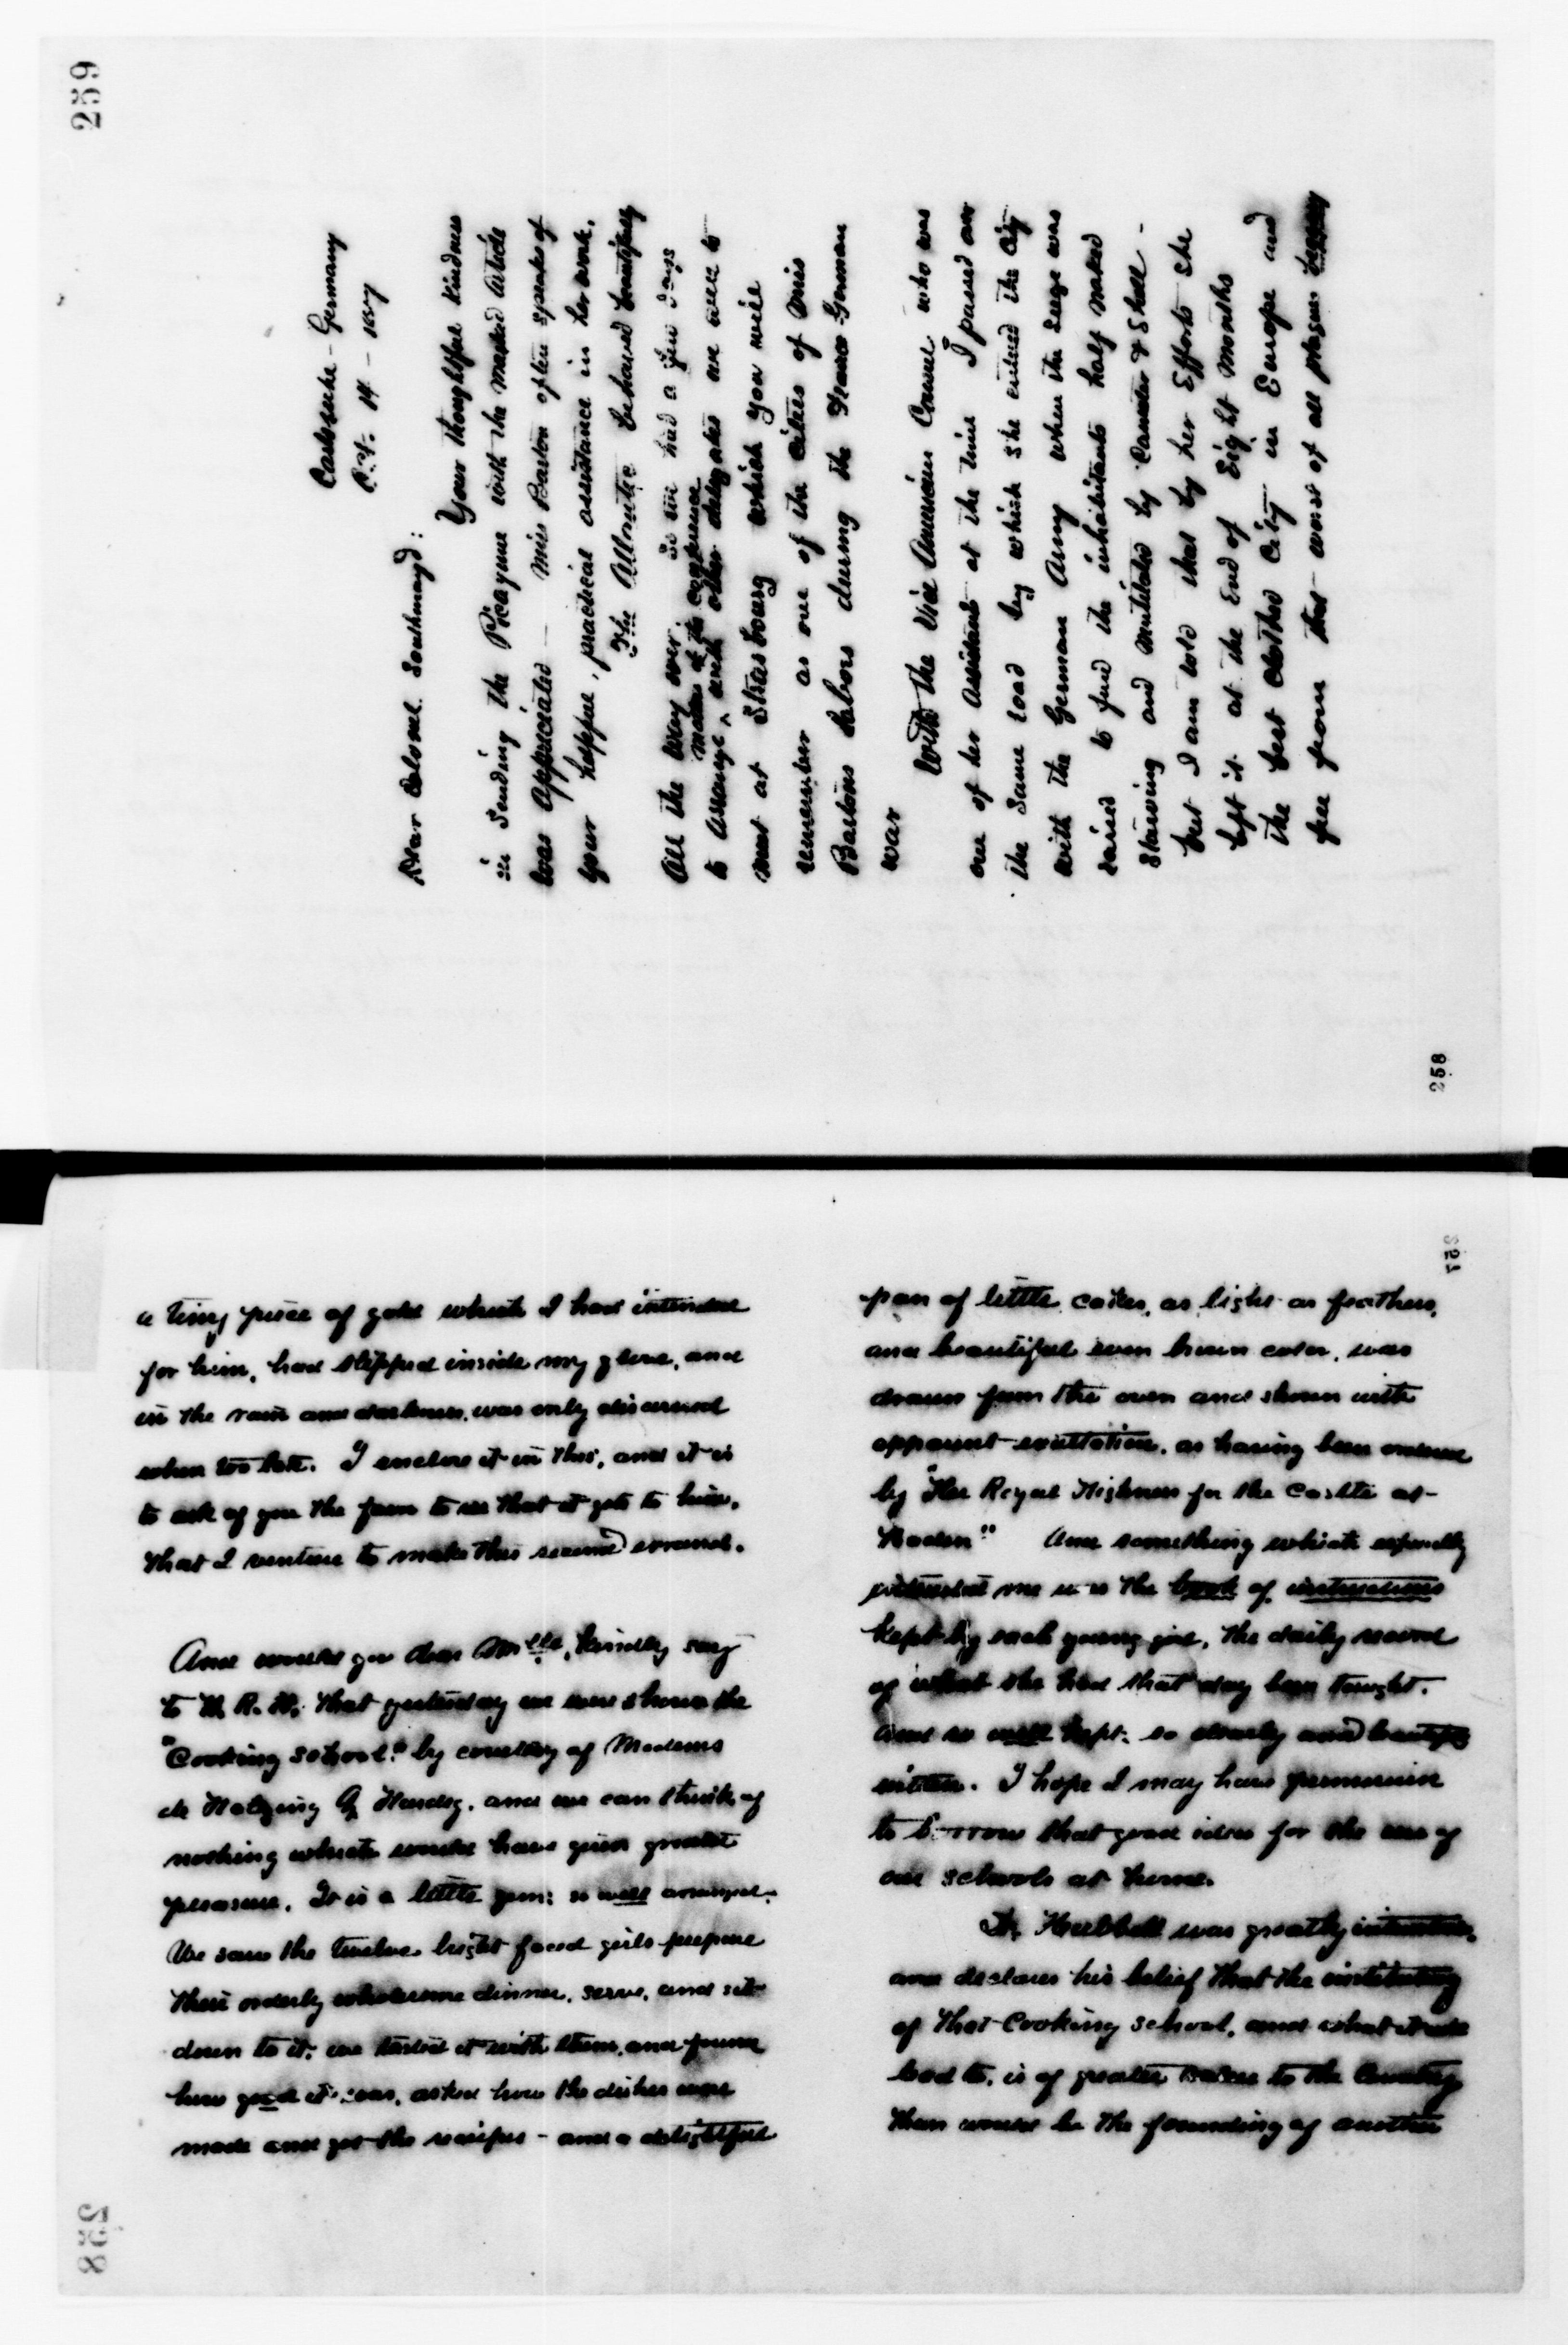 259
Carlsruhe - Germany
Oct. 14 - 1887
Dear Colonel Southmayd:
Your thoughtful kindness
in sending the Picayune with the marked article
was appreciated - Miss Barton often speaks of
your helpful, practical assistance in her work.
The Atlantic behaved beautifully
all the way over. So we had a few days
matters of the conference
to arrange ^ with other delegates we were to
meet at Strasbourg which you will
remember as one of the cities of Miss
Bartons labors during the Franco German
war
With the Vice American Consul who was
one of her assistants at the time I passed over
the same road by which she entered the city
with the German Army when the siege was
raised to find the inhabitants half naked
starving and mutilated by Cannon & Shell -
but I am told that by her Efforts she
left it at the End of Eight Months
the best clothed City in Europe and
free from that worst of all plagues
258
a tiny piece of gold which I had intended
for him, had slipped inside my glove, and
in the rain and darkness, was only discovered
when too late. I enclose it in this, and it is
to ask of you the favor to see that it gets to him,
that I venture to make this second errand.
And would you dear Mlle, kindly say
to H. R. H. that yesterday we were shown the
"Cooking School" by courtesy of Madems
de Holzing & Hardeg. and we can think of
nothing which would have given greater
pleasure. It is a little gem: so well arranged.
We saw the twelve bright faced girls prepare
their orderly wholesome dinner, serve, and sit
down to it; we tasted it with them, and found
how good it was, asked how the dishes were
made and got the recipes - and a delightful
258
257
pan of little cakes, as light as feathers,
and beautiful even brown color, was
drawn from the oven and shown with
apparent exultation, as having been ordered
by "Her Royal Highness for the Castle at-
Baden" And something which especially
interested me was the book of instructions
kept by each young girl, the daily record
of what she had that day been taught.
and so well kept; so clearly and beautifly
written. I hope I may have permission
to borrow that good idea for the use of
our schools at home.
Dr. Hubbell was greatly interested,
and declares his belief that the instituting
of that Cooking school, and what it will
lead to, is of greater value to the Country
than would be the founding of another